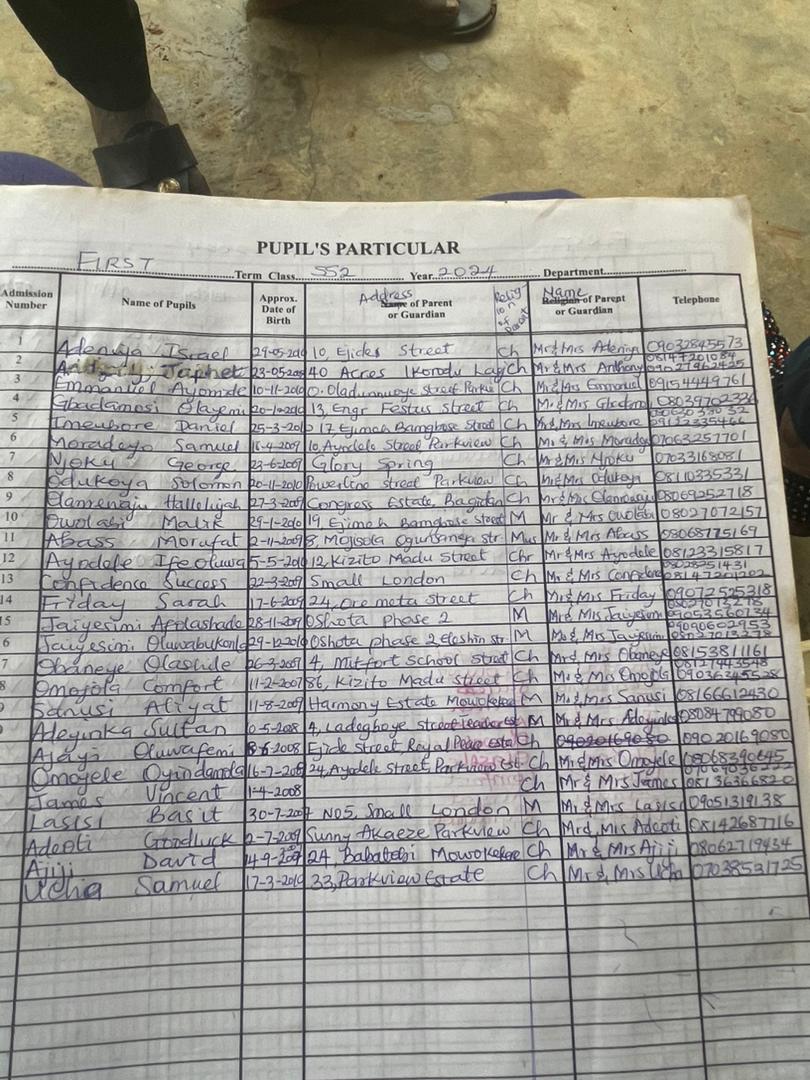 PUPIL'S PARTICULAR
FIRST Term Class SS2 Year 2024 Department
Admission Number Name of Pupils Approx. Date of Birth Address Name of Parent or Guardian Religion of Parent Name Religion of Parent or Guardian Telephone
1 Adeniya Israel 10, Ejides Street Ch Mr & Mrs Adeniya 09032845573
2 Japhet 40 Acres Ikorodu Ch Mr & Mrs Anthony 08147201084
3 Emmanuel Ayomide 10-11-2010 Ch Mr & Mrs Emmanuel 09154449761
4 Gbadamosi Olayemi 13, Engr Festus Street Ch Mr & Mrs
5 Imeubore Daniel 17 Ejimoh Bamgbose Street Ch Mr & Mrs Imeubore 09122335466
6 Moradeyo Samuel 16-4-2009 10, Ayodele Street Parkview Ch Mr & Mrs 07063257701
7 Njoku George 23-6-2009 Glory Spring Ch Mr & Mrs Njoku 07033168081
8 Odukoya Solomon 20-11-2010 Powerline street Parkview Ch Mr & Mrs Odukoya 08110335331
9 Olamenaju Hallelujah 27-3-2009 Congress Estate, Ch Mr & Mrs 08069252718
10 Owolabi Malik 29-1-2010 19, Ejimoh Bamgbose Street M Mr & Mrs Owolabi 08027072157
11 Abass Morufat 2-11-2009 8, Mojisola Ogunsanya str Mus Mr & Mrs Abass 08068775169
12 Ayodele Ifeoluwa 5-5-2010 12, Kizito Madu Street Chr Mr & Mrs Ayodele 08123315817
13 Confidence Success 22-3-2009 Small London Ch Mr & Mrs 08028251431 08147201202
14 Friday Sarah 17-6-2009 24, Ore meta street Ch Mr & Mrs Friday 09072525318
15 Jaiyesimi Afolashade 28-11-2009 Oshota phase 2 M Mr & Mrs Jaiyesimi 09053560734
6 Jaiyesimi Oluwabukonla 29-12-2010 Oshota phase 2 str M Mr & Mrs Jaiyesimi 09090602953
7 Obaneye Olashile 26-3-2007 4, Mitfort School Street Ch Mr & Mrs Obaneye 08153811161
8 Omojola Comfort 11-2-2007 86, Kizito Madu Street Ch Mr & Mrs Omojola 08127443548 09036345528
Sanusi Aliyat 11-8-2009 Harmony Estate M Mr & Mrs Sanusi 08166612430
Adeyinka Sultan 4, Ladegboye street M Mr & Mrs Adeyinka 08084799080
Ajayi Oluwafemi Ejide Street, Royal Peace Esta Ch 09020169080 09020169080
Omoyele Oyindamola 24, Ayodele Street, Ch Mr & Mrs Omoyele 08068390645
James Vincent 1-4-2008 Ch Mr & Mrs James 08136366820
Lasisi Basit NO5, Small London M Mr & Mrs Lasisi 09051319138
Adeoti Goodluck 2-7-2009 Sunny Akaeze Parkview Ch Mr & Mrs Adeoti 08142687716
Ajiji David 24, Babatobi Mowokekere Ch Mr & Mrs Ajiji 08062719434
Ucha Samuel 17-3-2010 33, Parkview Estate Ch Mr & Mrs Ucha 07038531725